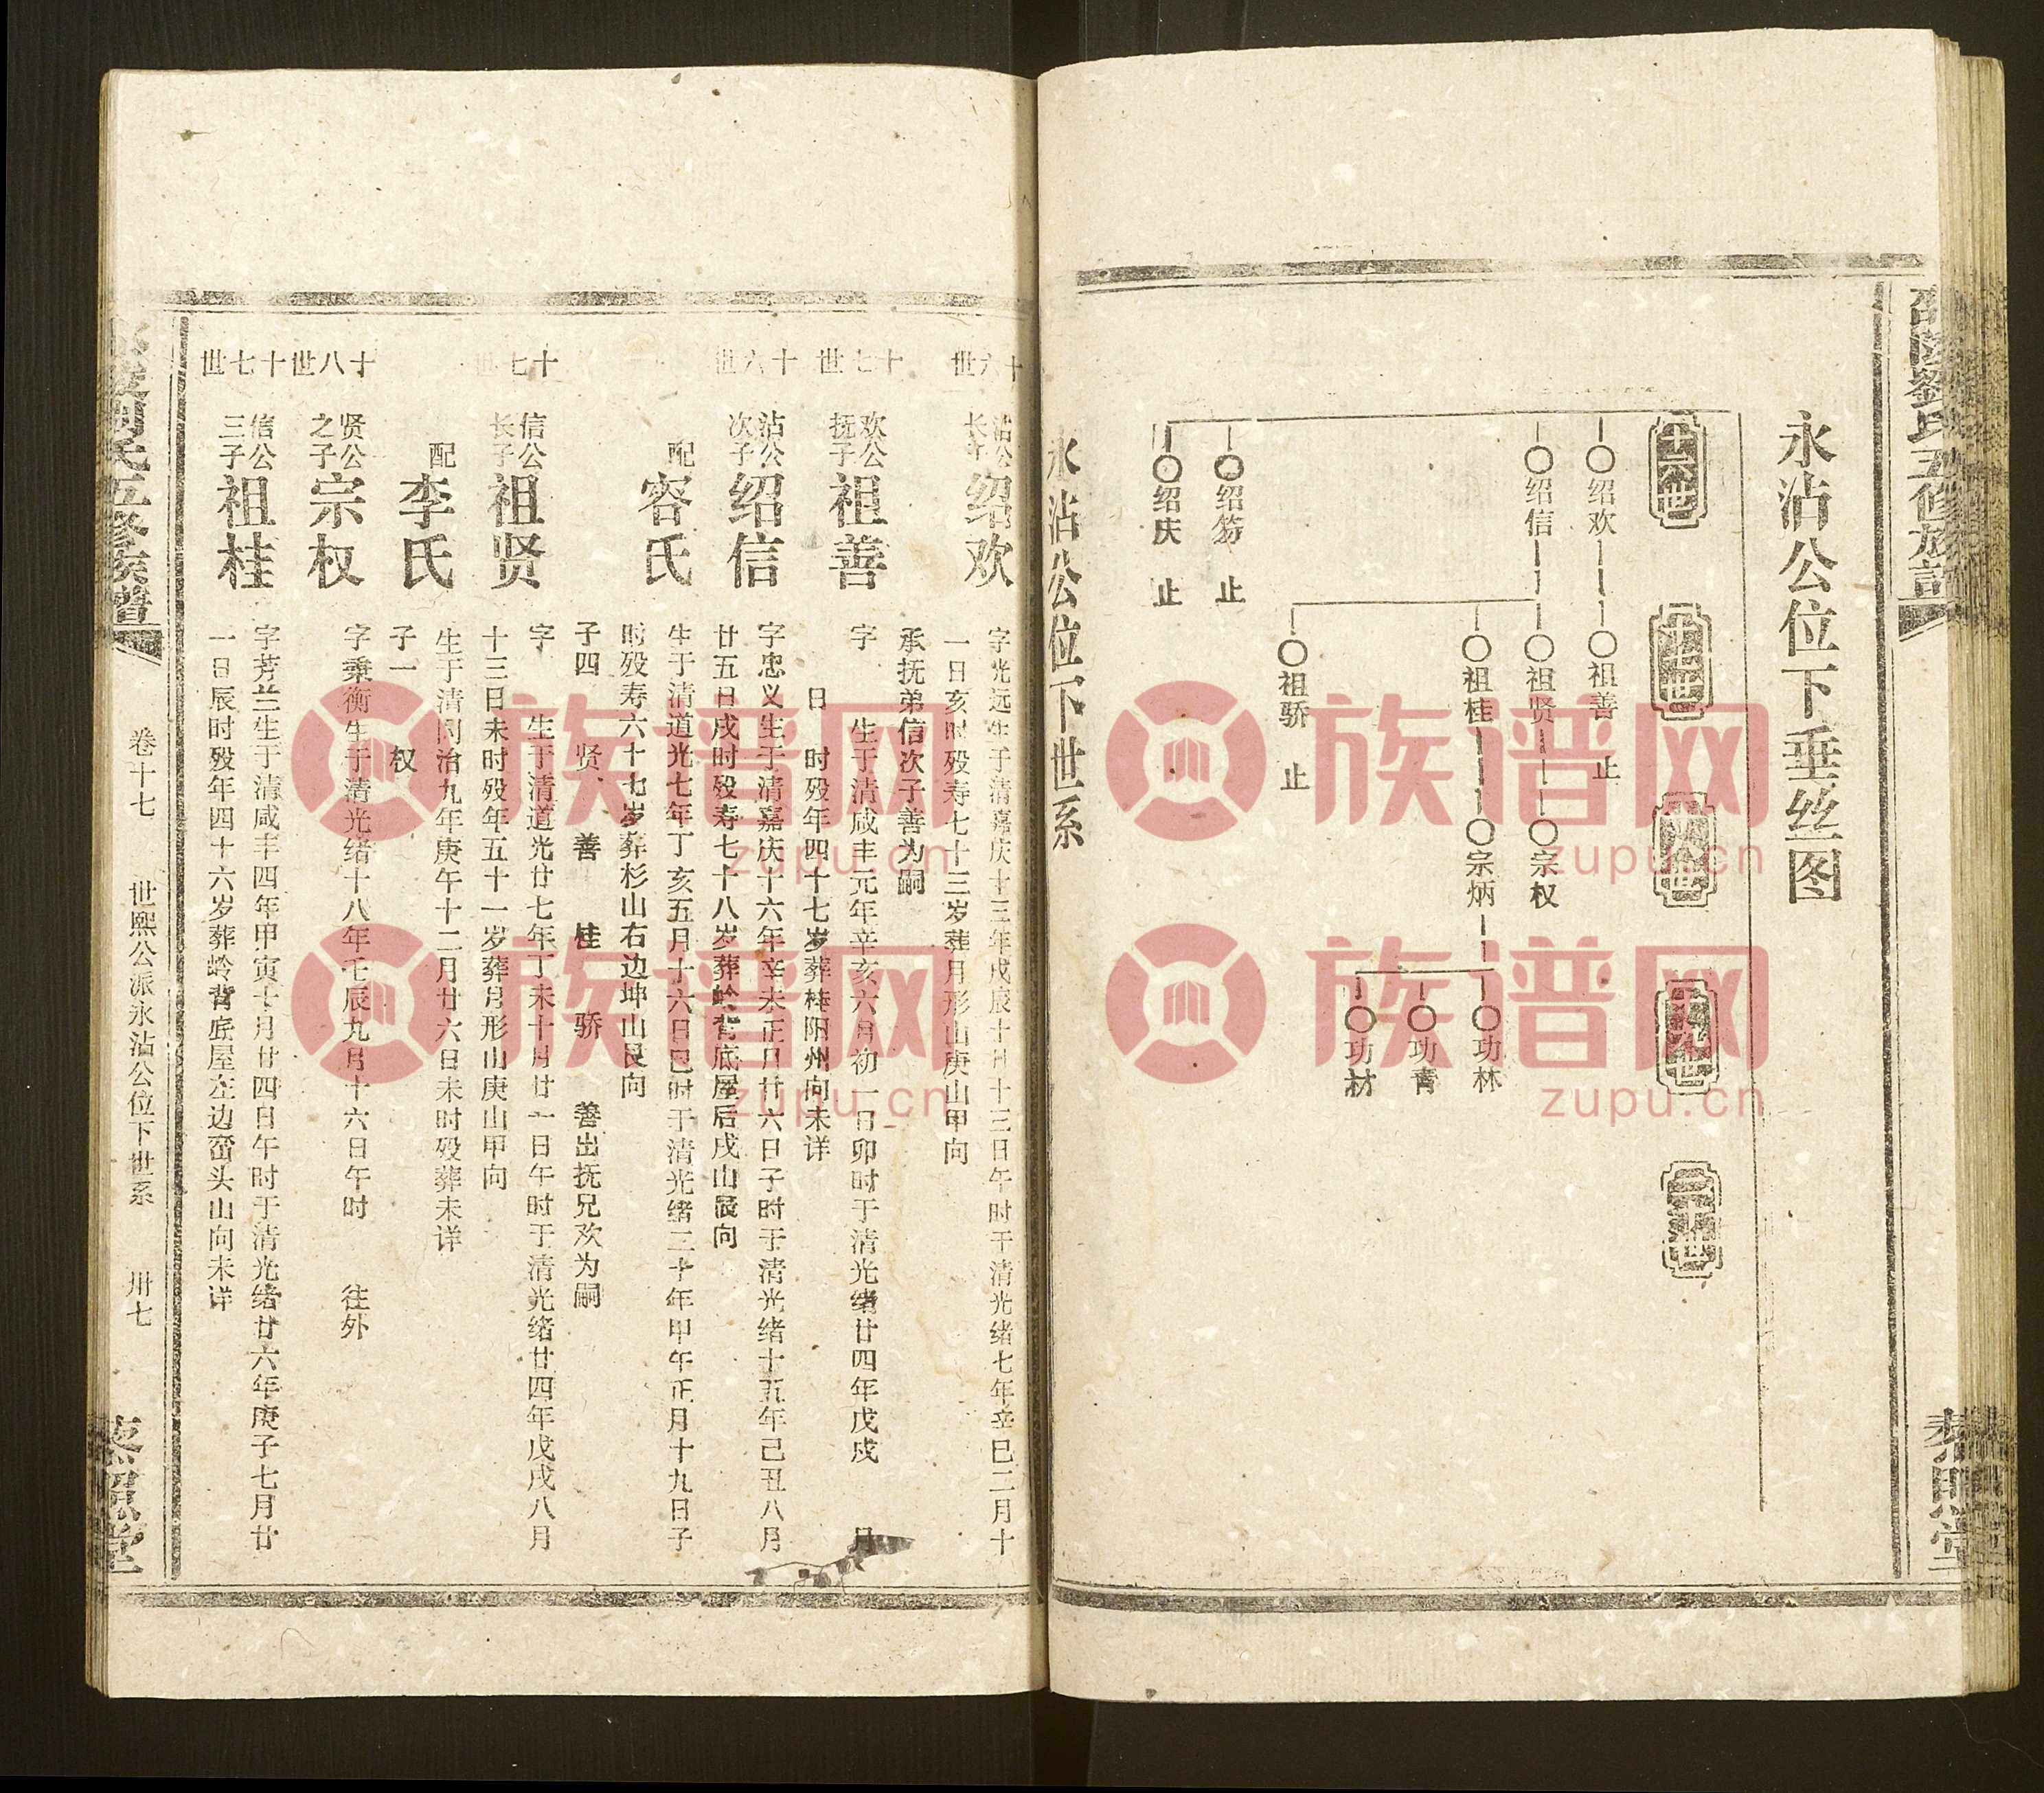 永沾公位下垂丝图
十六世
十七世
十八世
十九世
二十世
绍欢
祖善
止
绍信
祖贤
宗权
祖桂
宗炳
功林
功青
功材
祖骄
止
止
绍庆
止
永沾公位下世系
十六世
沾公长子
绍欢
字光远生于清嘉庆十三年戊辰十月十三日午时于清光绪七年辛巳二月十
一日亥时殁寿七十三岁葬月形山庚山甲向
承抚弟信次子善为嗣
十七世
欢公抚子
祖善
字 生于清咸丰元年辛亥六月初一日卯时于清光绪廿四年戊戌 月
日 时殁年四十七岁葬桂阳州向未详
十六世
沾公次子
绍信
字忠义生于清嘉庆十六年辛未正月廿六日子时于清光绪十五年己丑八月
廿五日戌时殁寿七十八岁葬岭背底屋后戌山辰向
配
容氏
生于清道光七年丁亥五月十六日巳时于清光绪二十年甲午正月十九日子
时殁寿六十七岁葬杉山右边坤山艮向
子四 贤 善 桂 骄 善出抚兄欢为嗣
十七世
信公长子
祖贤
字 生于清道光廿七年丁未十月廿一日午时于清光绪廿四年戊戌八月
十三日未时殁年五十一岁葬月形山庚山甲向
配
李氏
生于清同治九年庚午十二月廿六日未时殁葬未详
子一 权
十八世
贤公之子
宗权
字秉衡生于清光绪十八年壬辰九月十六日午时 往外
十七世
信公三子
祖桂
字芳兰生于清咸丰四年甲寅十月廿四日午时于清光绪廿六年庚子七月廿
一日辰时殁年四十六岁葬岭背底屋左边峦头山向未详
卷十七
世熙公派永沾公位下世系
卅七
族谱网
zupu.cn
族谱网
zupu.cn
族谱网
zupu.cn
族谱网
zupu.cn